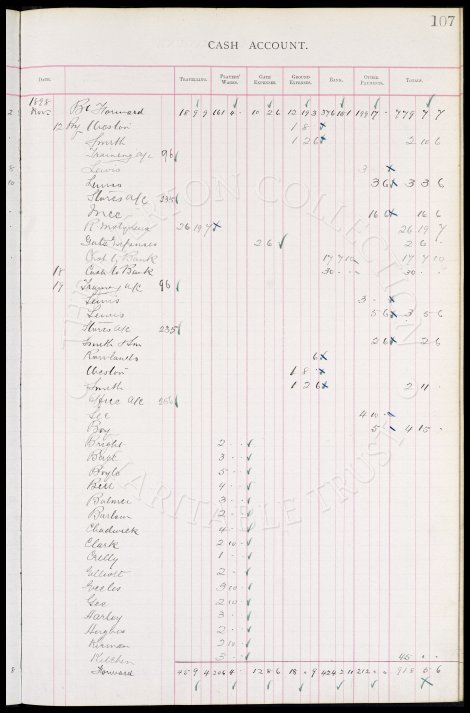 107
CASH ACCOUNT.
DATE. TRAVELLING. PLAYERS' WAGES. GATE EXPENSES. GROUND EXPENSES. BANK. OTHER PAYMENTS. TOTALS.
1898
Nov. Bt Forward 18 9 9 161 4 - 10 2 6 12 19 3 376 10 1 199 17 - 779 7 7
12 Pay Weston 1 8 -
Smith 1 2 6 2 10 6
Training a/c 96
Lewis 3 -
Lewis 3 6 3 3 6
Stores a/c 235
Ince 16 6 16 6
26 19 7 26 19 7
Gate Expenses 2 6 2 6
Cash to Bank 17 7 10 17 7 10
18 Cash to Bank 30 - - 30 - -
19 Training a/c 96
Lewis 3 -
Lewis 5 6 3 5 6
Stores a/c 235
Smith & Son 2 6 2 6
Rowlands 6
Weston 1 8 -
Smith 1 2 6 2 11 -
Office a/c
Lee 4 10 -
Boy 5 - 4 15 -
Bright 2 - -
3 - -
Boyle 5 - -
Bill 4 - -
Balmer 3 - -
Barlow 2 - -
Chadwick 4 - -
Clark 2 10 -
Crelly 1 - -
Elliott 2 - -
Eccles 3 10 -
Gee 2 10 -
Harley 3 - -
Hughes 2 - -
Kirwan 2 10 -
Kitchen 3 - - 45 - -
Forward 45 9 4 206 4 - 12 8 6 18 - 9 424 2 11 212 - - 918 5 6